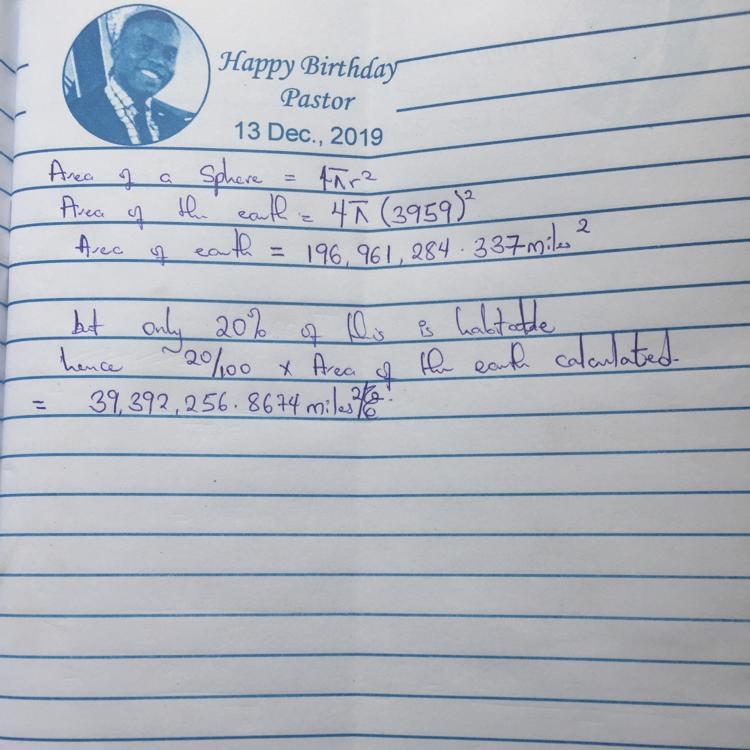 Happy Birthday
Pastor
13 Dec., 2019
Area of a Sphere = 4πr²
Area of the earth = 4π (3959)²
Area of earth = 196,961,284.337 miles²
but only 20% of this is habitable
hence ~20/100 x Area of the earth calculated.
= 39,392,256.8674 miles²